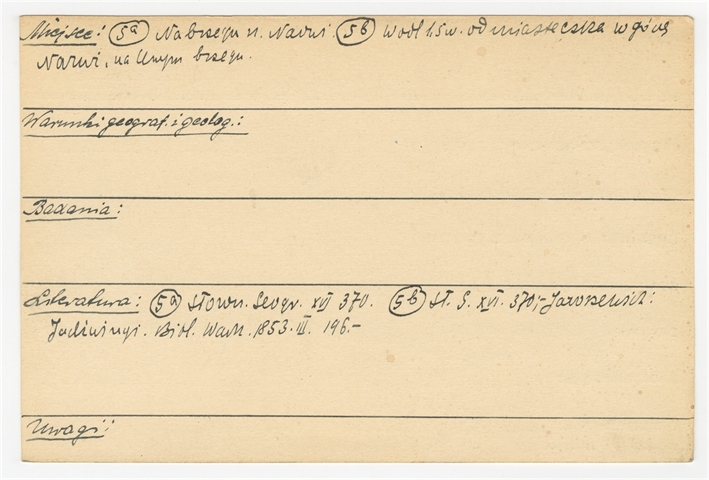 Miejsce: 5a Na brzegu rz. Narwi. 5b w odl 1.5 w. od miasteczka w górę
Narwi, na lewym brzegu.
Warunki geograf. i geolog.:
Badania:
Literatura: 5a Słown. Geogr. XIV 370. 5b Sł. G. XVI. 370,- Jaroszewicz:
Jadźwingi. Bibl. Warsz. 1853. III. 196.-
Uwagi: